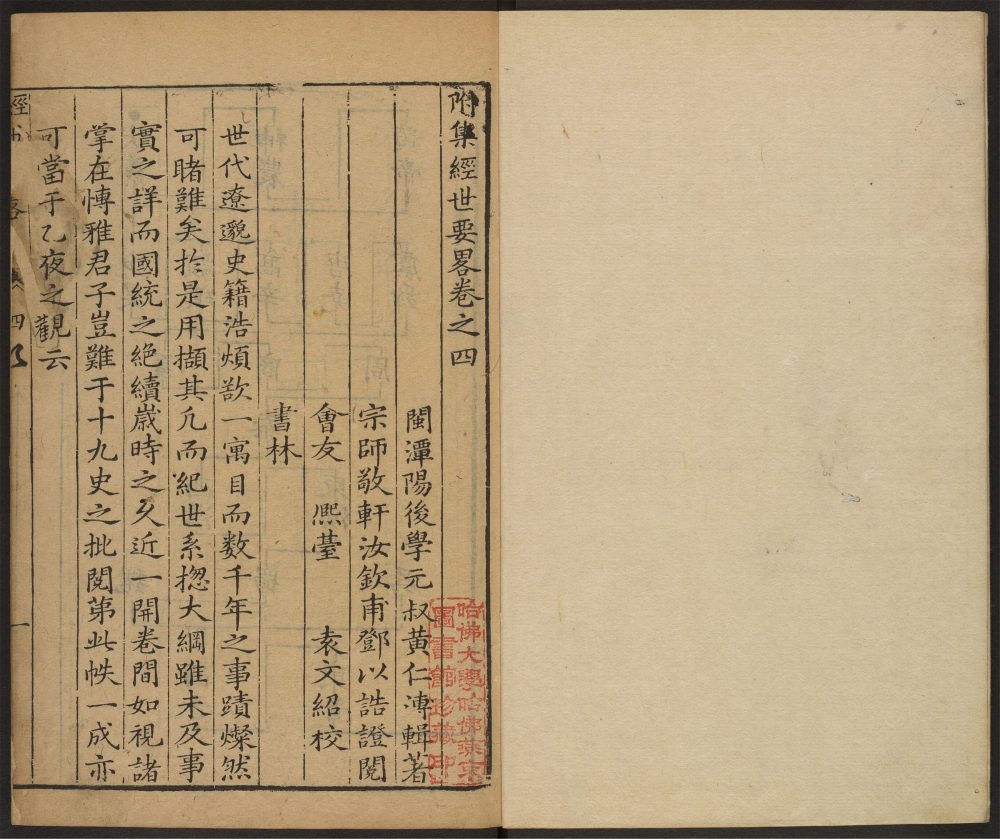 附集經世要畧卷之四
閩潭陽後學元叔黃仁溥輯著
宗師敬軒汝欽甫鄧以誥證閱
會友 熈臺 袁文紹校
書林
世代遼邈史籍浩煩欲一寓目而数千年之事蹟燦然
可睹難矣扵是用擷其凢而紀世系揔大綱雖未及事
實之詳而國統之絶續嵗時之久近一開卷間如視諸
掌在愽雅君子豈難于十九史之批閱第此帙一成亦
可當于乙夜之觀云
經 畧 四 一
哈佛大學哈佛燕京
圖書館珍藏印